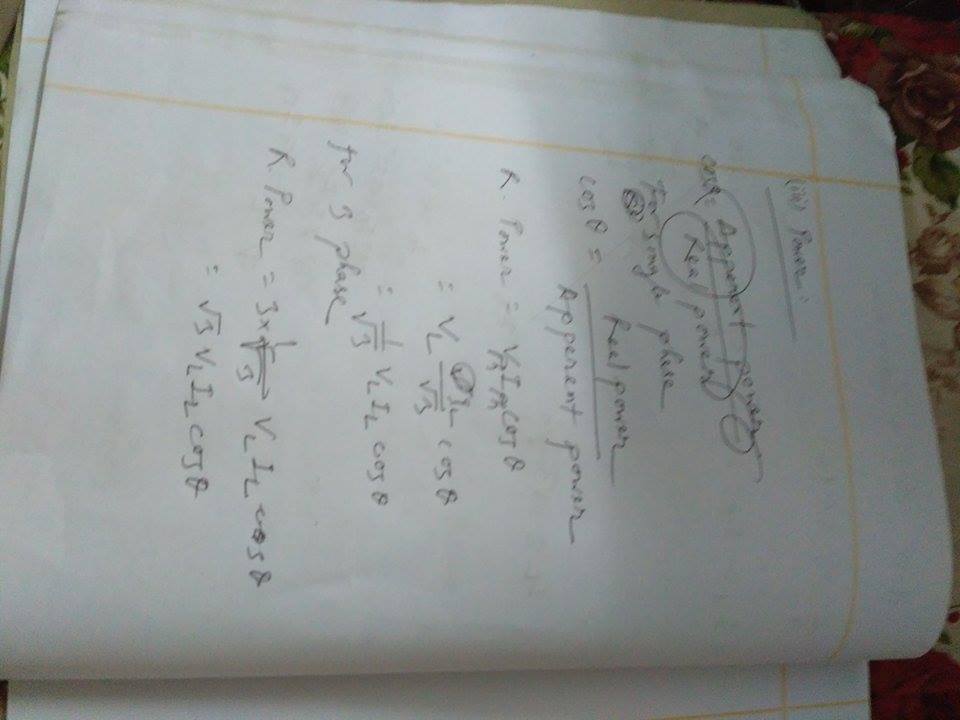 (iii) Power:
cosθ = Apperent power / Real power
For single phase
cosθ = Real power / Apperent power
R. Power = V_Ph I_Ph cosθ
= V_L I_L/√3 cosθ
= 1/√3 V_L I_L cosθ
for 3 phase
R. Power = 3 × 1/√3 V_L I_L cosθ
= √3 V_L I_L cosθ